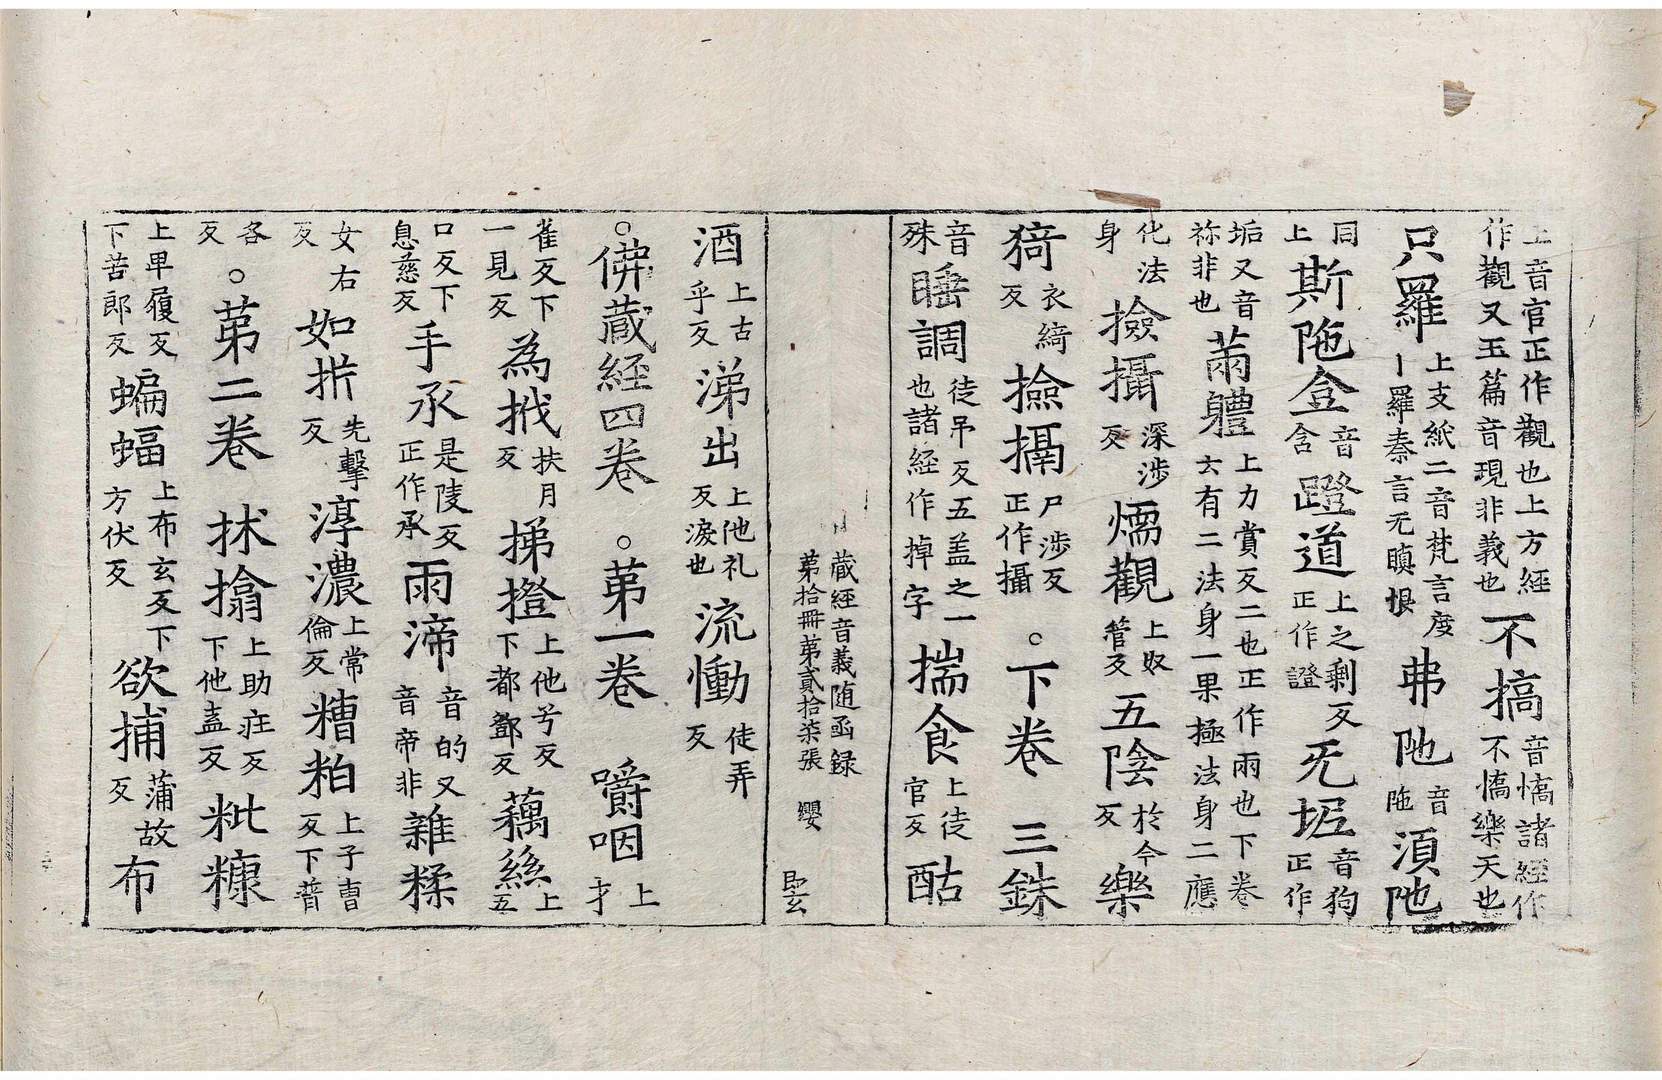 上音官正作觀也上方經作觀又玉篇音現非義也不搞音憍諸經作不憍樂天也
只羅上支紙二音梵言度丨羅秦言无瞋恨弗阤音陁湏阤
同上斯陁含音含蹬道上之剩反正作證无垢音狗正作
垢又音祢非也䒢軆上力賞反二也正作兩也下卷云有二法身一果極法身二應
化法身撿攝深涉反㬉觀上奴管反五陰於今反樂
猗衣綺反撿攝尸涉反正作攝。下卷三銖
音殊睡調徒吊反五盖之一也諸経作掉字揣食上徒官反酤
藏經音義随函録
第拾冊第貳拾柒張 纓
酒上古乎反涕出上他礼反淚也流慟徒弄反
。佛藏経四卷。第一卷嚼咽上才
雀反下一見反為栰扶月反挮橙上他兮反下都鄧反藕絲上五
口反下息慈反手承是陵反正作承雨渧音的又音帝非雜糅
女右反如㭊先擊反淳濃上常倫反糟粕上子曺反下普
各反。第二卷㧒㩉上助庄反下他盍反粃糠
上卑履反下苦郎反蝙蝠上布玄反下方伏反欲捕蒲故反布